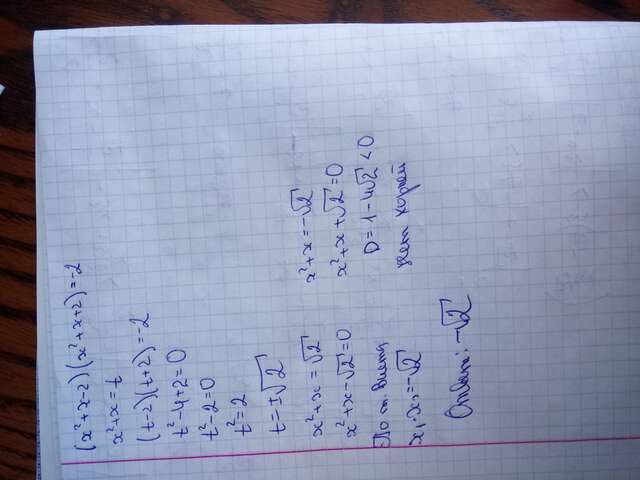 (x²+x-2)(x²+x+2)=-2
x²+x=t
(t-2)(t+2)=-2
t²-4+2=0
t²-2=0
t²=2
t=±√2
x²+x=√2
x²+x-√2=0
По т. Виета
x₁·x₂=-√2
x²+x=-√2
x²+x+√2=0
D=1-4√2<0
нет корней
Ответ: -√2